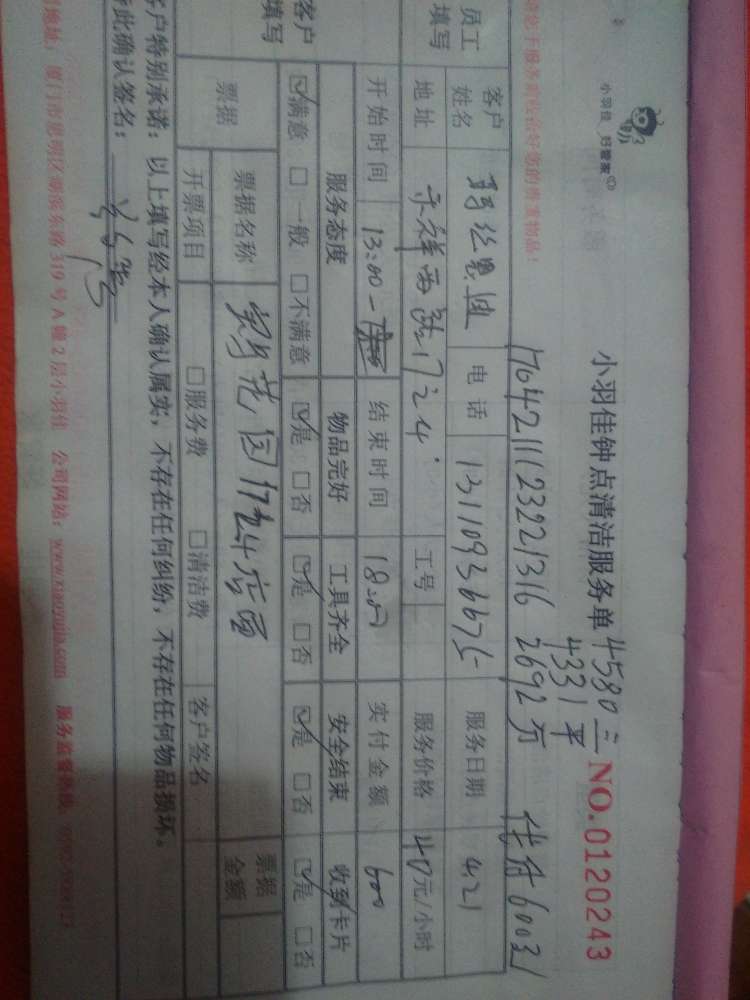 小羽佳 好管家
小羽佳钟点清洁服务单
NO.0120243
4580三
4331平
17042111232221316 2692万
6003
员工填写
客户姓名
电话
13110936675
服务日期
4.21
地址
1724
工号
服务价格
40元/小时
开始时间
13:00
结束时间
18:00
实付金额
600
客户填写
服务态度
物品完好
工具齐全
安全结束
收到卡片
☑满意 □一般 □不满意
☑是 □否
☑是 □否
☑是 □否
☑是 □否
票据
票据名称
花园1724店面
票据金额
开票项目
□服务费 □清洁费
客户签名
客户特别承诺：以上填写经本人确认属实，不存在任何纠纷，不存在任何物品损坏。
此确认签名：
地址：厦门市思明区湖滨东路319号A幢2层小羽佳 公司网站：www.xiaoyujia.com 服务监督热线：